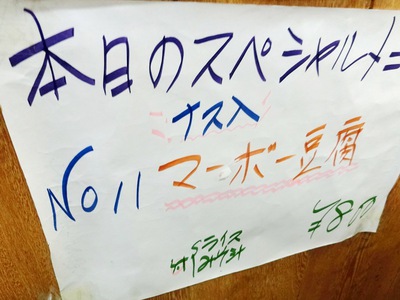 本日のスペシャルメニ
ナス入
No 11 マーボー豆腐
ライス
付
¥800